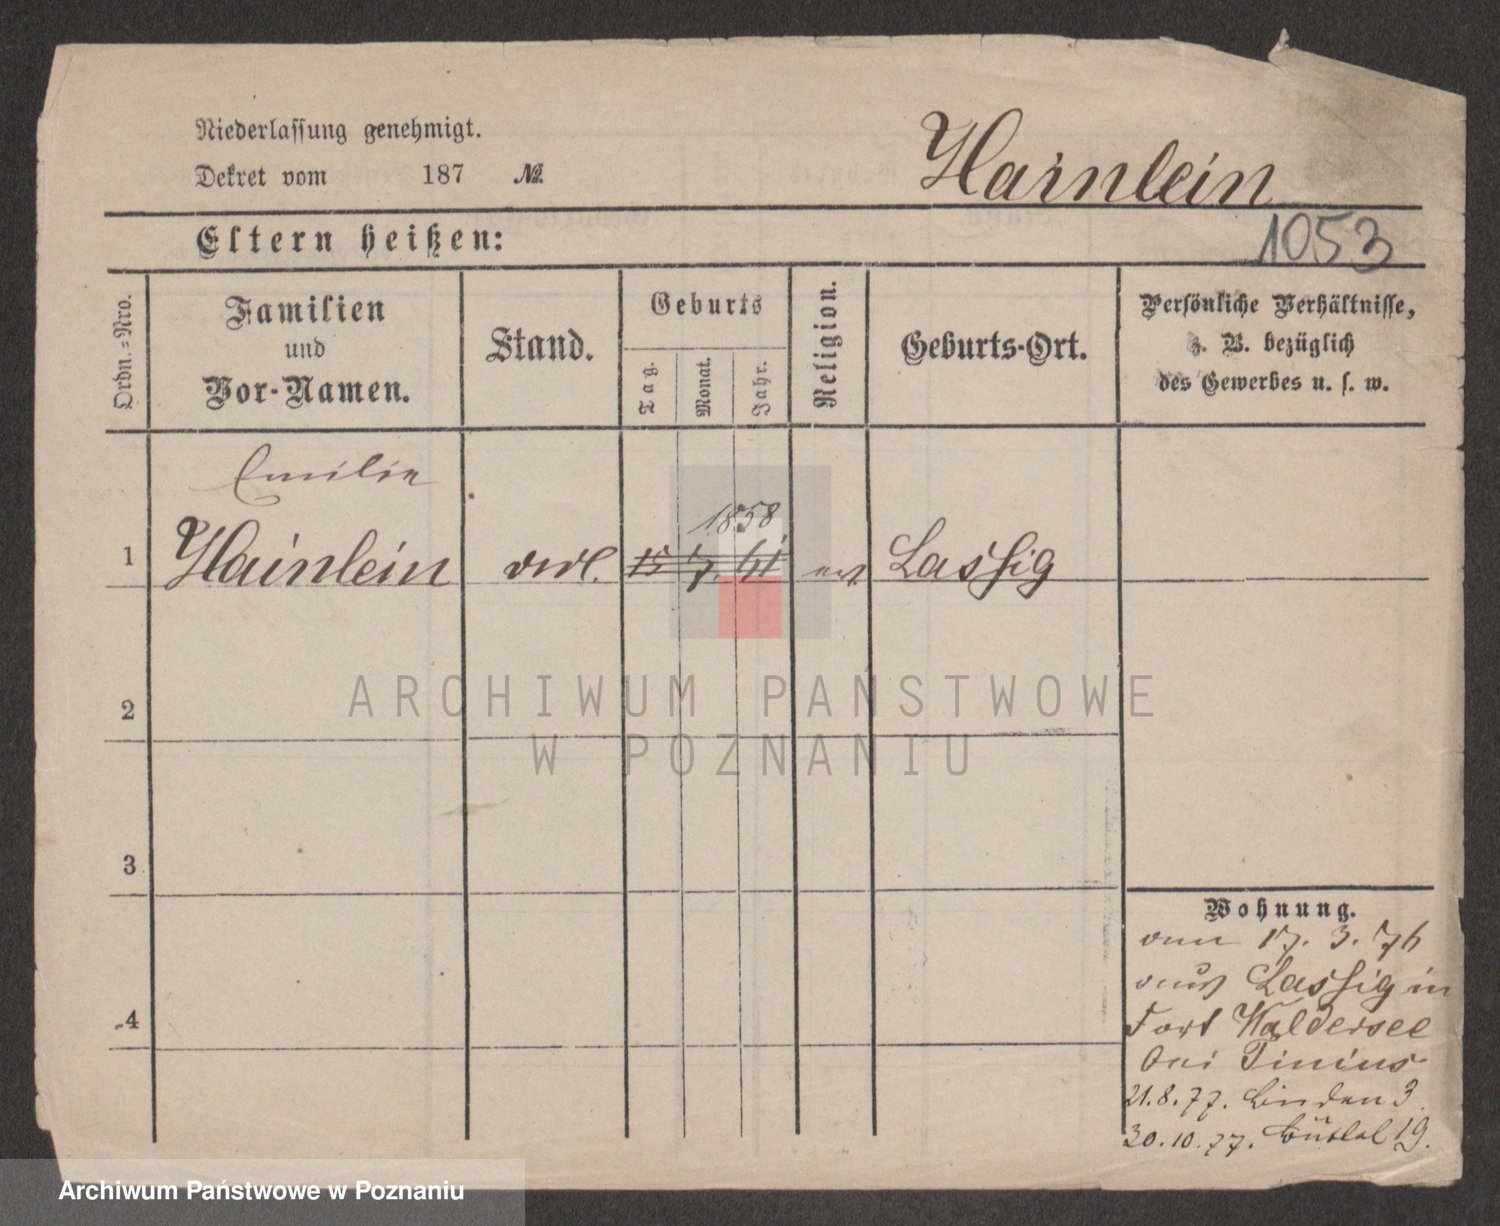 Niederlassung genehmigt.
Dekret vom 187 No.
Hainlein
1053
Eltern heißen:
Ordn.-Nro.
Familien
und
Vor-Namen.
Stand.
Geburts
Tag.
Monat.
Jahr.
Religion.
Geburts-Ort.
Persönliche Verhältnisse,
z. B. bezüglich
des Gewerbes u. s. w.
Emilie
1858
1 Hainlein 15 7. 61 ev Lassig
2
3
4
Wohnung.
vom 17. 3. 76
aus Lassig in
Fort Waldersee
bei Tinius
21.8.77. Linden 3.
30.10.77. 19.
ARCHIWUM PAŃSTWOWE
W POZNANIU
Archiwum Państwowe w Poznaniu